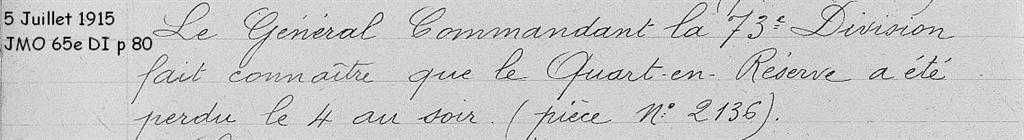 5 Juillet 1915
JMO 65e DI p 80
Le Général Commandant la 73e Division
fait connaître que le Quart-en-Réserve a été
perdu le 4 au soir. (pièce N° 2136).